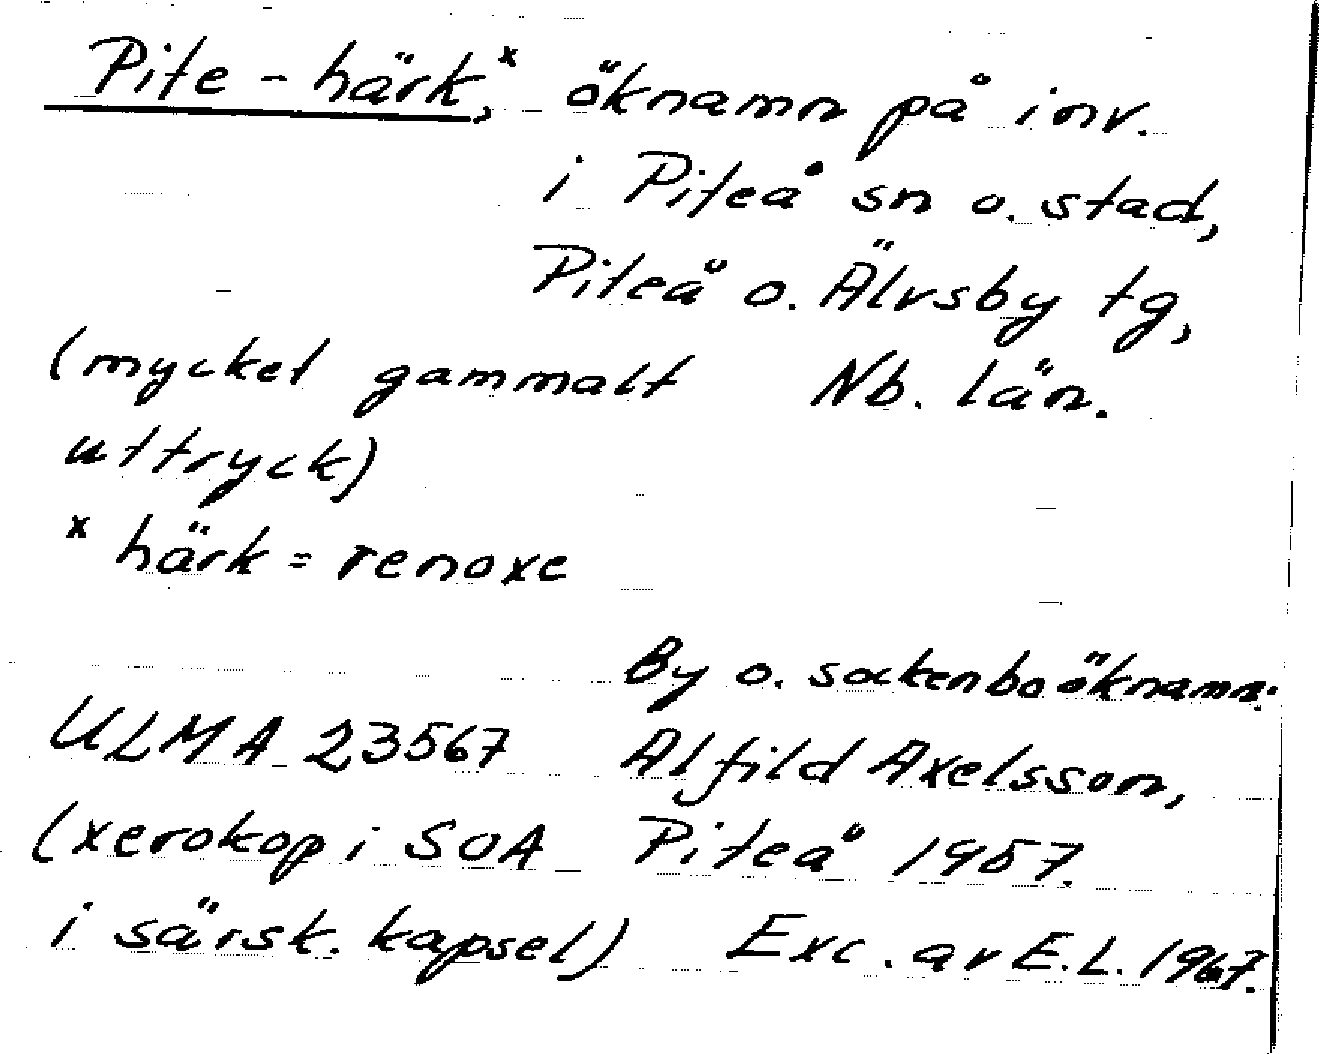 Pite-härk,ˣ öknamn på inv.
i Piteå sn o. stad,
Piteå o. Älvsby tg,
(mycket gammalt Nb. län.
uttryck)
ˣ härk = renoxe
By o. sockenboöknamn.
ULMA 23567 Alfild Axelsson,
(xerokop i SOA Piteå 1957.
i särsk. kapsel) Exc. av E.L. 1967.